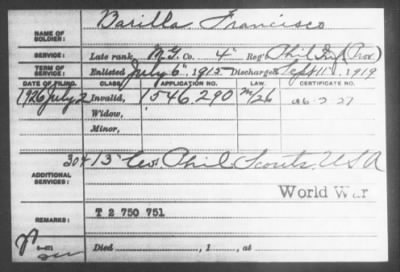 NAME OF SOLDIER: Barilla Francisco
SERVICE: Late rank, M.G. Co. 4" Reg't Phil Inf (Prov)
TERM OF SERVICE: Enlisted July 6", 1915 Discharged Sept 11", 1919
DATE OF FILING. CLASS. APPLICATION NO. LAW. CERTIFICATE NO.
1926 July 2 Invalid, 1546,290
Widow,
Minor,
ADDITIONAL SERVICES: 30 & 13" Cos. Phil Scouts, U.S.A
World War
REMARKS: T 2 750 751
Died , 1 , at